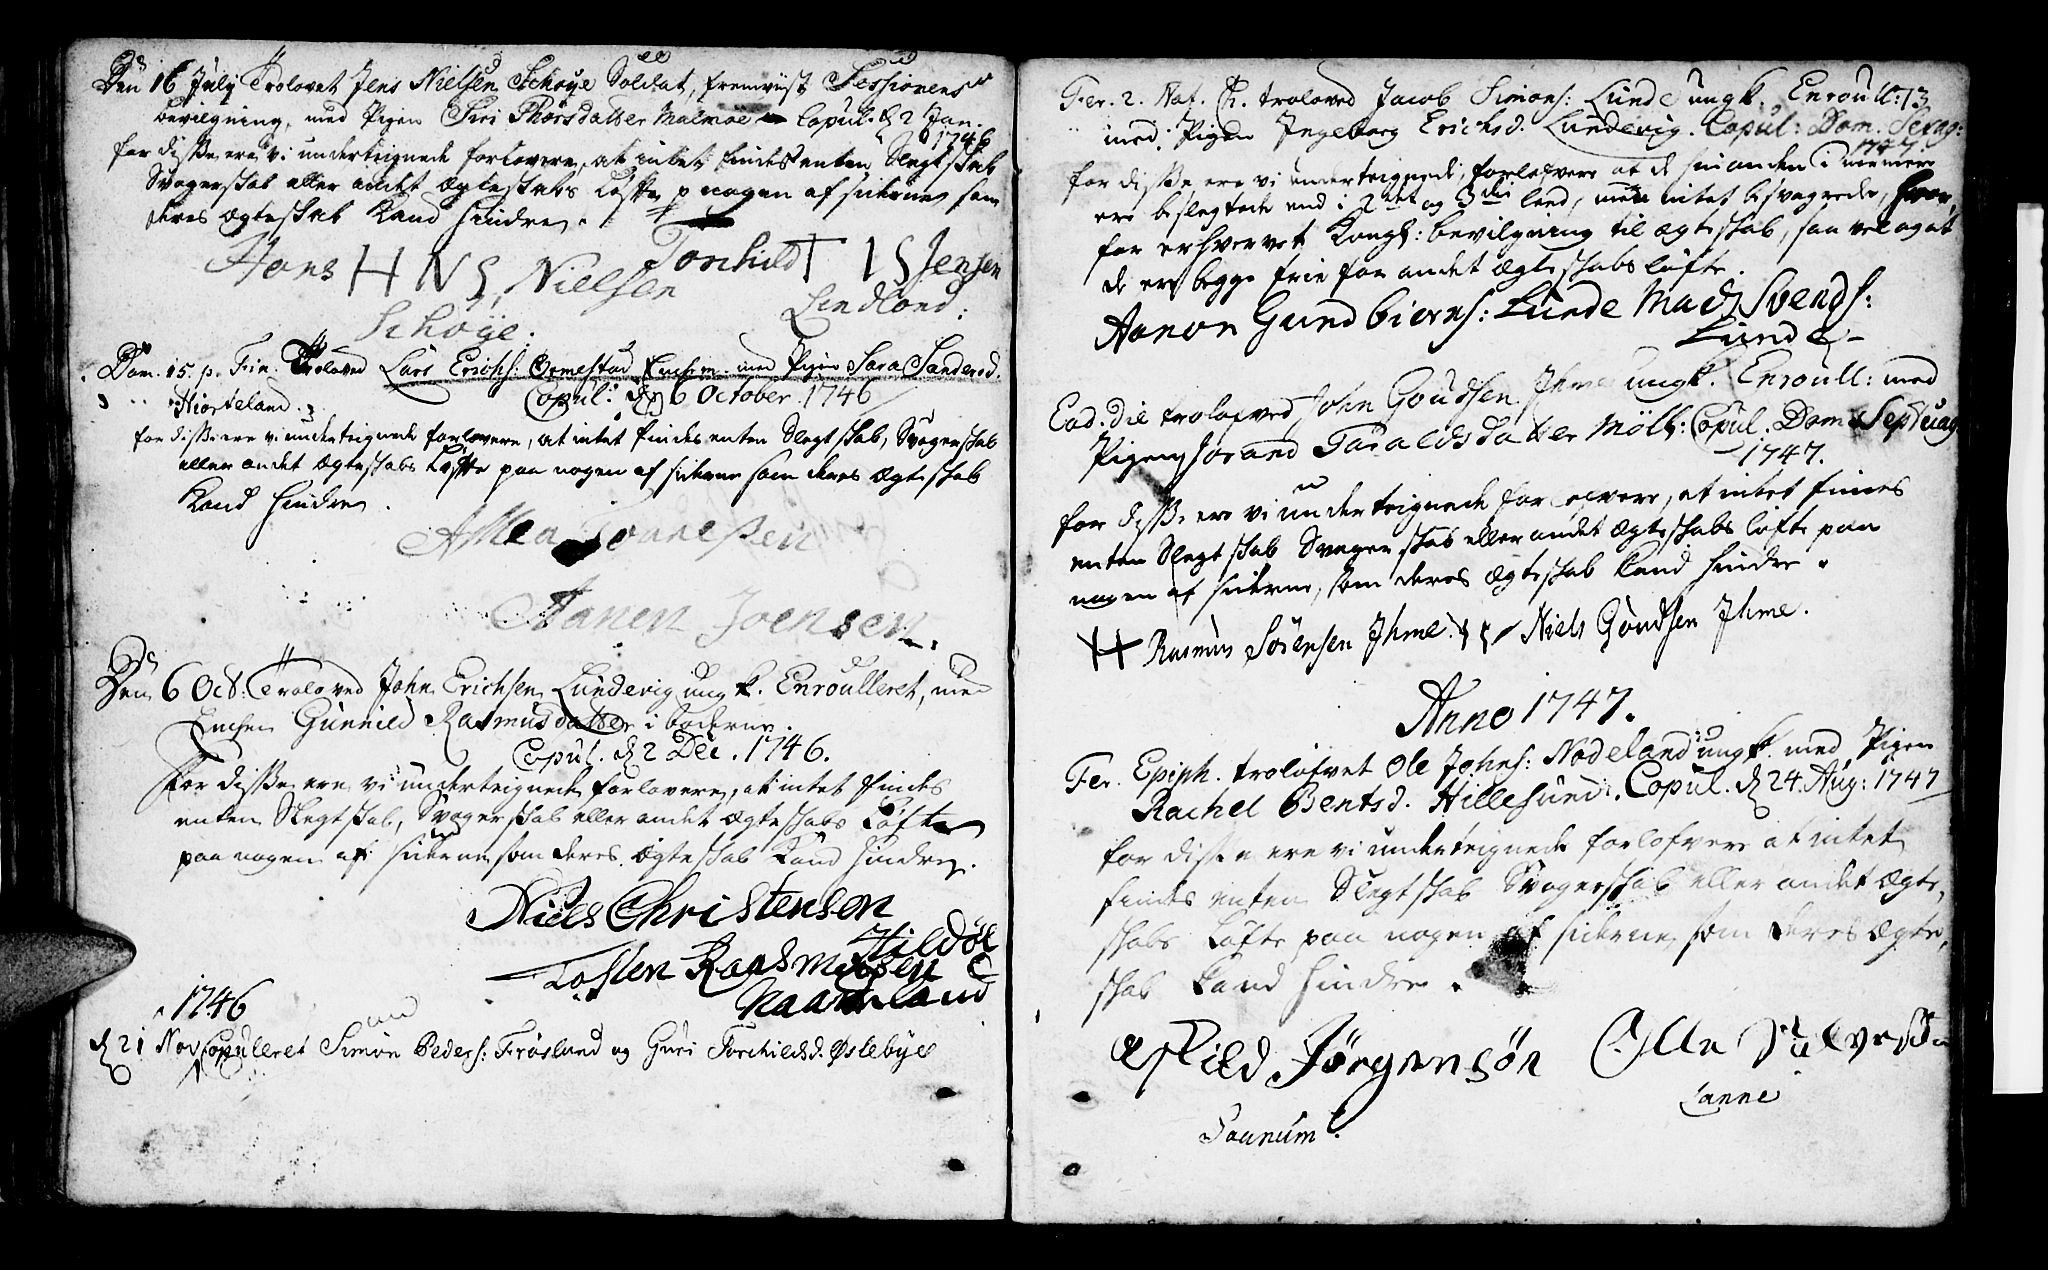 Den 16 July Trolovet Jens Nielsen Schøye Soldat, fremviist Sessionens
bevilgning, med Pigen Siri Thorsdatter Malmøe Copul. d 2 Jan.
1746
for disse ere vi undertegnede forlovere, at intet findes enten Slegtskab
Svogerskab eller andet ægteskabs Løfte p nogen af siderne som
deres ægteskab kand hindre.
Hans HNS Nielsen Torchild T IS Jensen
Schøye. Lindland:
Dom. 15. p. Trin. Troloved Lars Erichs: Ormestad Enchem. med Pigen Sara Sandersd.
Hiorteland. Copul: d 6 October 1746
for disse ere vi undertegnede forlovere, at intet findes enten Slegtskab, Svogerskab
eller andet ægteskabs Løfte paa nogen af siderne som deres ægteskab
kand hindre.
Aanen Joensen.
Den 6 Oct: Troloved John Erichsen Lundevig ungk. Enroulleret, med
Enchen Gunnild Rasmusdatter i boderne.
Copul. d 2 Dec. 1746.
For disse ere vi undertegnede forlovere, at intet findes
enten Slegtskab, Svogerskab eller andet ægteskabs Løfte
paa nogen af siderne som deres ægteskab kand hindre.
Niels Christensen
Hildøe
Tosten Raasmussen
Naarland
1746
d 21 Nov Copulleret Simon Peders: Frøsland og Guri Torchildsd. Øslebye
Fer. 2. Nat. Chr. troloved Jacob Simons: Lunde ungk. Enroull: 13
med Pigen Ingeborg Erichsd. Lundevig. Copul: Dom. Sexag:
1747.
for disse ere vi undertegnede forlofvere at de hinanden i nermere
ere beslegtede end i 2det og 3die leed, men intet besvogrede, hvor,
for erhvervet Kongl: bevilgning til ægteskab, saa vel og at
de ere begge frie for andet ægteskabs løfte.
Aanon Gundbiørns: Lunde Mads Svends:
Lunde
Ead. die trolofved John Goudsen Ihme ungk. Enroull: med
Pigen Jorand Taraldsdatter Møll: Copul. Dom Septuag
1747.
for disse ere vi undertegnede forlofvere, at intet findes
enten Slegtskab Svogerskab eller andet ægteskabs løfte paa
nogen af siderne, som deres ægteskab kand hindre.
Rasmus Sørensen Ihme. Niels Goudsen Ihme.
Anno 1747.
Fer. Epiph. trolofvet Ole Johns: Nodeland ungk. med Pigen
Rachel Bentsd. Hillesund. Copul. d 24. Aug: 1747
for disse ere vi undertegnede forlofvere at intet
findes enten Slegtskab Svogerskab eller andet ægte,
skabs Løfte paa nogen af siderne som deres ægte,
skab kand hindre.
Eskild Jørgensøn
Tannum.